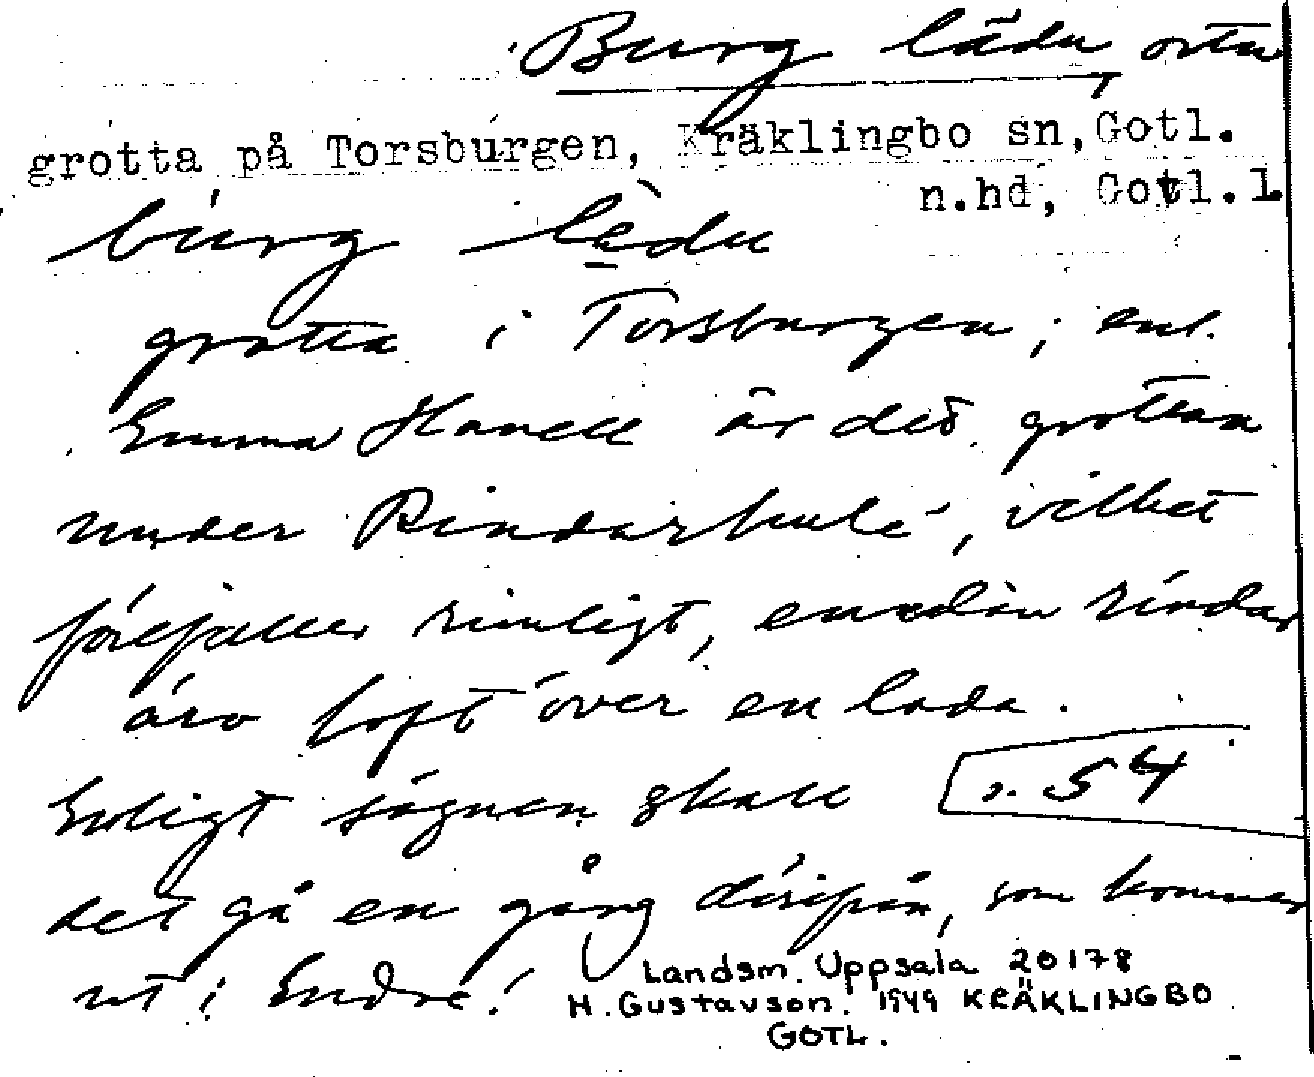 Burg lädu,
grotta på Torsburgen, Kräklingbo sn, Gotl.
n.hd, Gotl.l
burg lèdu
grotta i Torsburgen; enl.
Emma Havell är det grottan
under Rindarhule, vilket
förefaller rimligt, enedan rindar
äro loft över en lada.
Enligt sägnen skall
s. 54
det gå en gång därifrån, som kommer
ut i Endre!
Landsm. Uppsala 20178
H. Gustavson 1949 KRÄKLINGBO
GOTL.